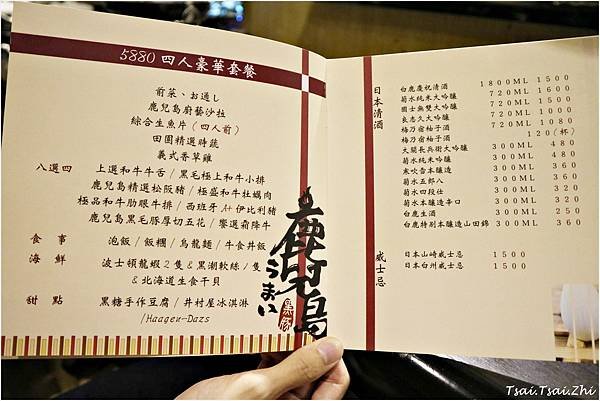 5880 四人豪華套餐
前菜、お通し
鹿兒島廚藝沙拉
綜合生魚片(四人前)
田園精選時蔬
義式香草雞
八選四 上選和牛牛舌/黑毛極上和牛小排
鹿兒島精選松阪豬/極盛和牛牡蠣肉
極品和牛肋眼牛排/西班牙A+伊比利豬
鹿兒島黑毛豚厚切五花/饗選霜降牛
食事 泡飯/飯糰/烏龍麵/牛食丼飯
海鮮 波士頓龍蝦2隻&黑潮軟絲1隻
&北海道生食干貝
甜點 黑糖手作豆腐/井村屋冰淇淋
/Haagen-Dazs
鹿兒島
うまい
黑豚
日本清酒
白鹿慶祝清酒 1800ML 1500
菊水純米大吟釀 720ML 1600
國士無雙大吟釀 720ML 1500
良志久大吟釀 720ML 1000
梅乃宿柚子酒 720ML 1080
梅乃宿柚子酒 120(杯)
大關長兵衛大吟釀 300ML 480
菊水純米吟釀 300ML 480
寒吹雪本釀造 300ML 360
菊水五郎八 300ML 360
菊水四段仕 300ML 360
菊水本釀造辛口 300ML 320
白鹿生酒 300ML 250
白鹿特別本釀造山田錦 300ML 360
威士忌
日本山崎威士忌 1500
日本白州威士忌 1500
Tsai.Tsai.Zhi